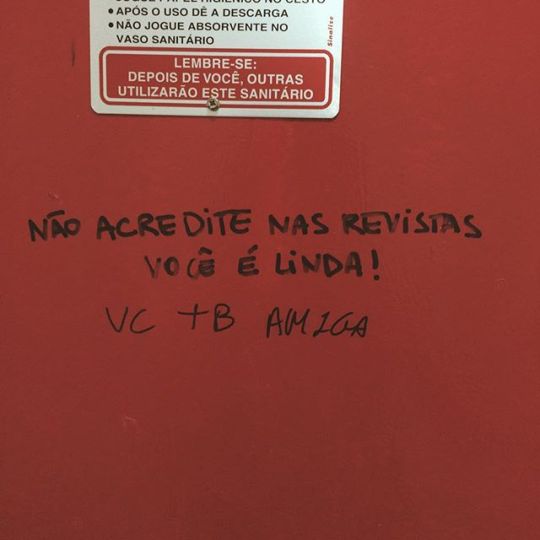 • APÓS O USO DÊ A DESCARGA
• NÃO JOGUE ABSORVENTE NO
VASO SANITÁRIO
Sinalize
LEMBRE-SE:
DEPOIS DE VOCÊ, OUTRAS
UTILIZARÃO ESTE SANITÁRIO
NÃO ACREDITE NAS REVISTAS
VOCÊ É LINDA!
VC TB AMIGA